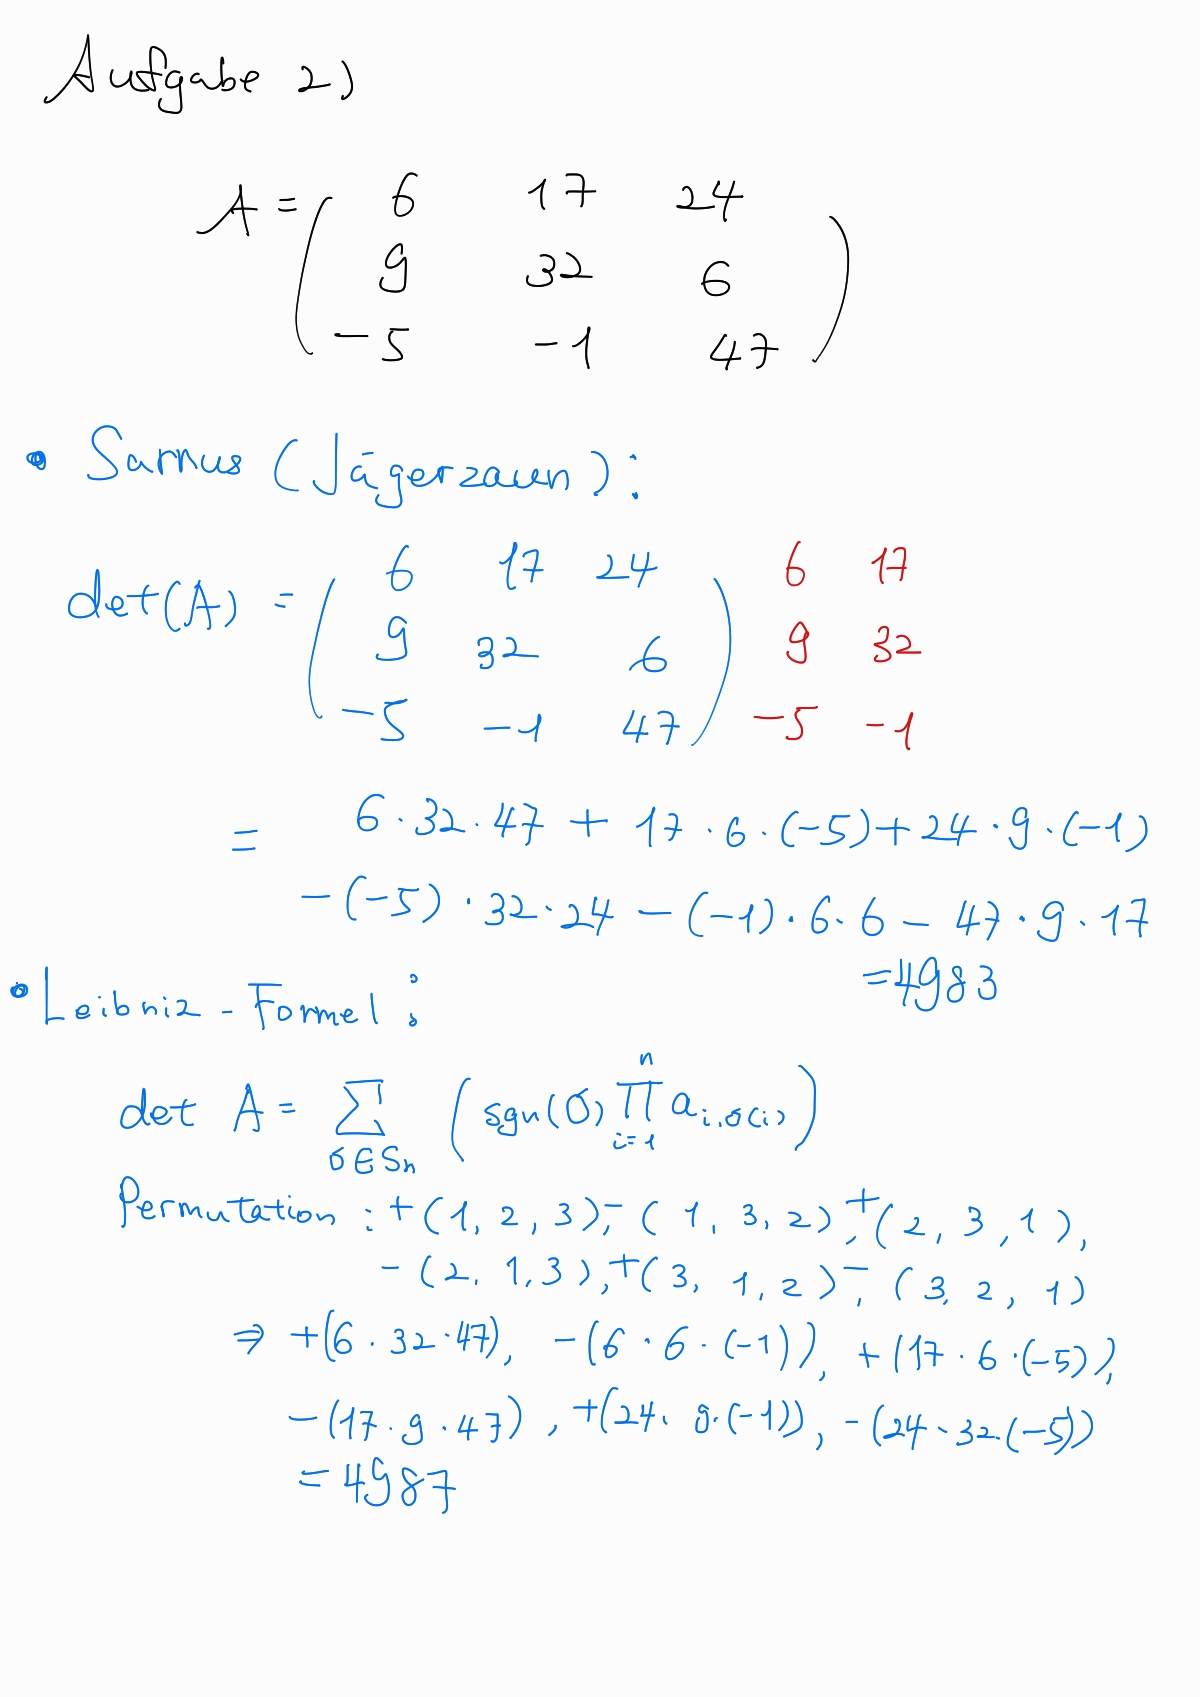 Aufgabe 2)
A = ( 6 17 24
9 32 6
-5 -1 47 )
• Sarrus (Jägerzaun):
det(A) = ( 6 17 24 ) 6 17
9 32 6 9 32
-5 -1 47 -5 -1
= 6 · 32 · 47 + 17 · 6 · (-5) + 24 · 9 · (-1)
- (-5) · 32 · 24 - (-1) · 6 · 6 - 47 · 9 · 17
= 4983
• Leibniz - Formel :
det A = ∑ σ∈Sn ( sgn(σ) ∏ i=1 n a i,σ(i) )
Permutation : +(1, 2, 3), -(1, 3, 2), +(2, 3, 1),
-(2, 1, 3), +(3, 1, 2), -(3, 2, 1)
⇒ +(6 · 32 · 47), -(6 · 6 · (-1)), +(17 · 6 · (-5)),
-(17 · 9 · 47), +(24 · 9 · (-1)), -(24 · 32 · (-5))
= 4987